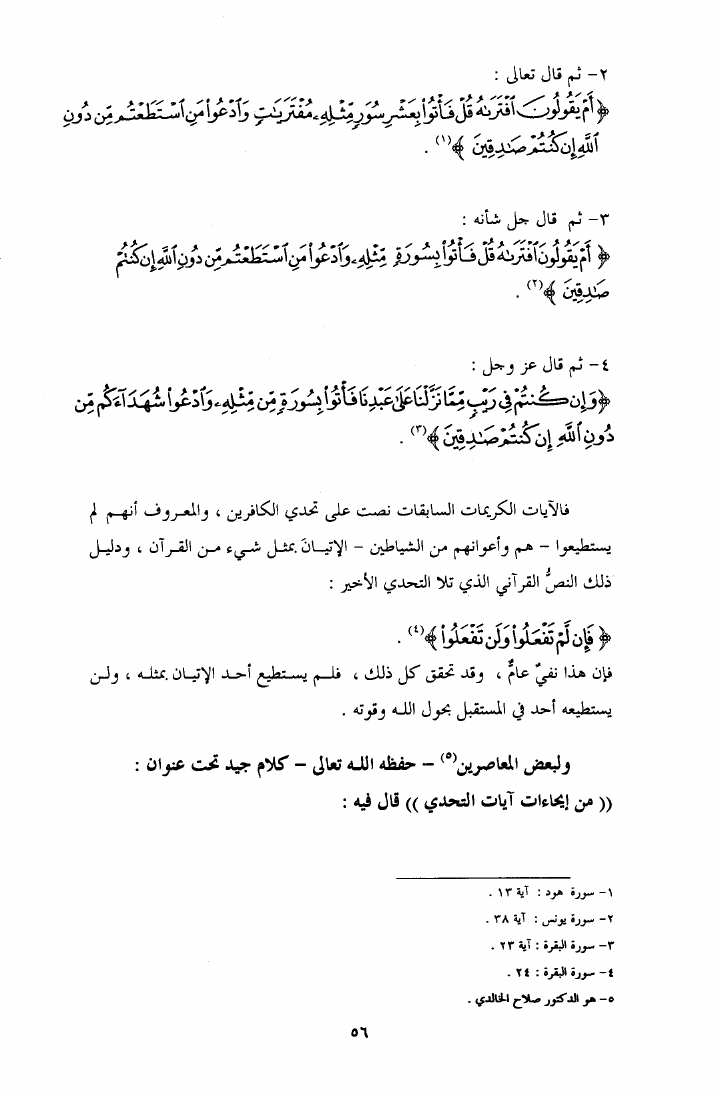 ٢- ثم قال تعالى :
﴿ أَمْ يَقُولُونَ ٱفْتَرَىٰهُ قُلْ فَأْتُوا۟ بِعَشْرِ سُوَرٍ مِّثْلِهِۦ مُفْتَرَيَٰتٍ وَٱدْعُوا۟ مَنِ ٱسْتَطَعْتُم مِّن دُونِ
ٱللَّهِ إِن كُنتُمْ صَٰدِقِينَ ﴾(١) .
٣- ثم قال جل شأنه :
﴿ أَمْ يَقُولُونَ ٱفْتَرَىٰهُ قُلْ فَأْتُوا۟ بِسُورَةٍ مِّثْلِهِۦ وَٱدْعُوا۟ مَنِ ٱسْتَطَعْتُم مِّن دُونِ ٱللَّهِ إِن كُنتُمْ
صَٰدِقِينَ ﴾(٢) .
٤- ثم قال عز وجل :
﴿ وَإِن كُنتُمْ فِى رَيْبٍ مِّمَّا نَزَّلْنَا عَلَىٰ عَبْدِنَا فَأْتُوا۟ بِسُورَةٍ مِّن مِّثْلِهِۦ وَٱدْعُوا۟ شُهَدَآءَكُم مِّن
دُونِ ٱللَّهِ إِن كُنتُمْ صَٰدِقِينَ ﴾(٣) .
فالآيات الكريمات السابقات نصت على تحدي الكافرين ، والمعروف أنهم لم
يستطيعوا - هم وأعوانهم من الشياطين - الإتيانَ بمثل شيء من القرآن ، ودليل
ذلك النصُّ القرآني الذي تلا التحدي الأخير :
﴿ فَإِن لَّمْ تَفْعَلُوا۟ وَلَن تَفْعَلُوا۟ ﴾(٤) .
فإن هذا نفيٌ عامٌّ ، وقد تحقق كل ذلك ، فلم يستطيع أحد الإتيان بمثله ، ولن
يستطيعه أحد في المستقبل بحول الله وقوته .
ولبعض المعاصرين(٥) - حفظه الله تعالى - كلام جيد تحت عنوان :
(( من إيحاءات آيات التحدي )) قال فيه :
١- سورة هود : آية ١٣ .
٢- سورة يونس : آية ٣٨ .
٣- سورة البقرة : آية ٢٣ .
٤- سورة البقرة : ٢٤ .
٥- هو الدكتور صلاح الخالدي .
٥٦